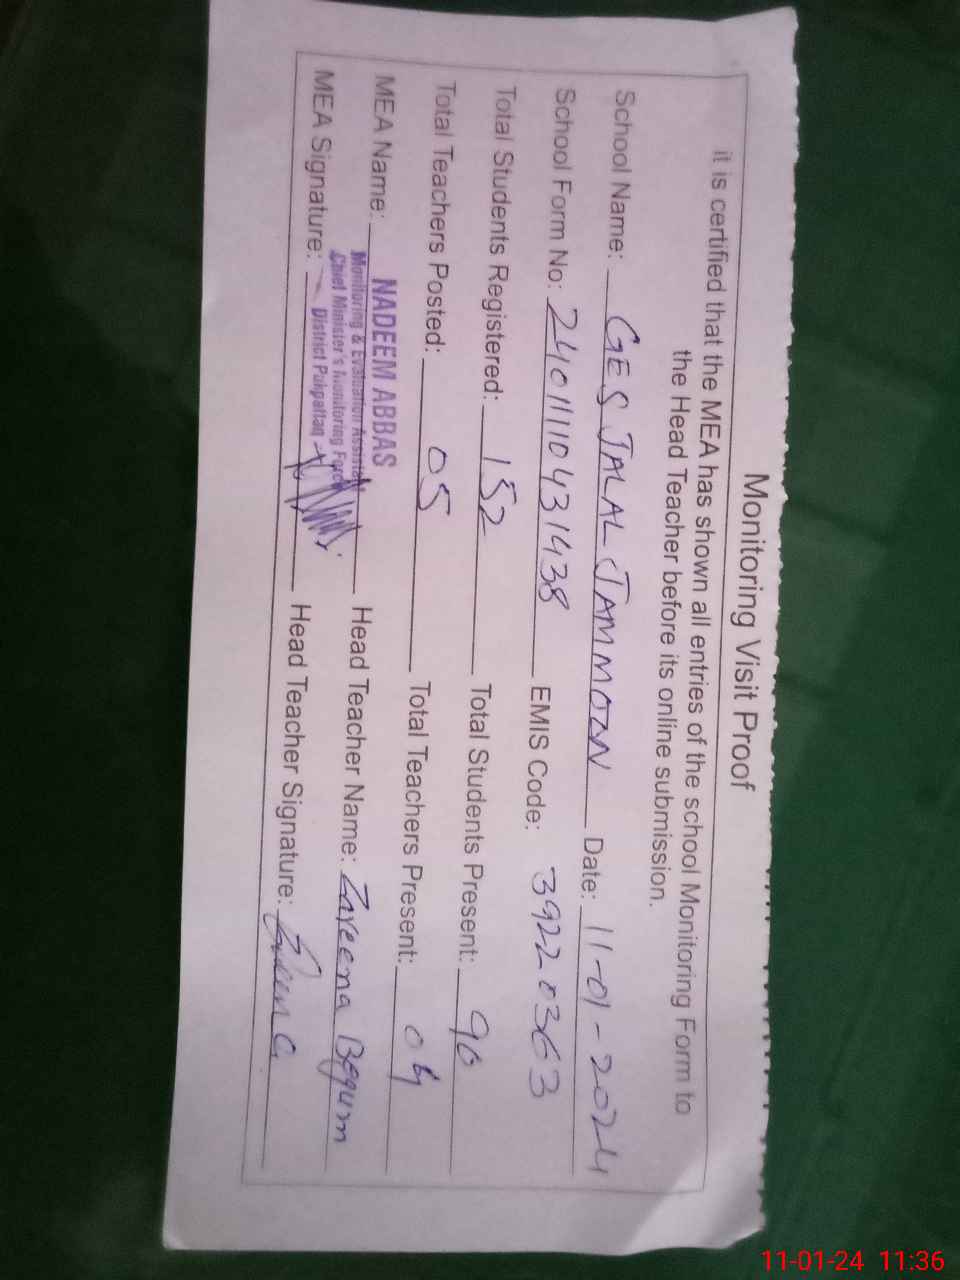 Monitoring Visit Proof
it is certified that the MEA has shown all entries of the school Monitoring Form to
the Head Teacher before its online submission.
School Name: GES JALAL JAMMOIN Date: 11-01-2024
School Form No: 2401110431438 EMIS Code: 39220363
Total Students Registered: 152 Total Students Present: 90
Total Teachers Posted: 05 Total Teachers Present: 04
MEA Name: NADEEM ABBAS Head Teacher Name: Zareena Begum
Monitoring & Evaluation Assistant
Chief Minister's Monitoring Force
District Pakpattan
MEA Signature: Head Teacher Signature:
11-01-24 11:36